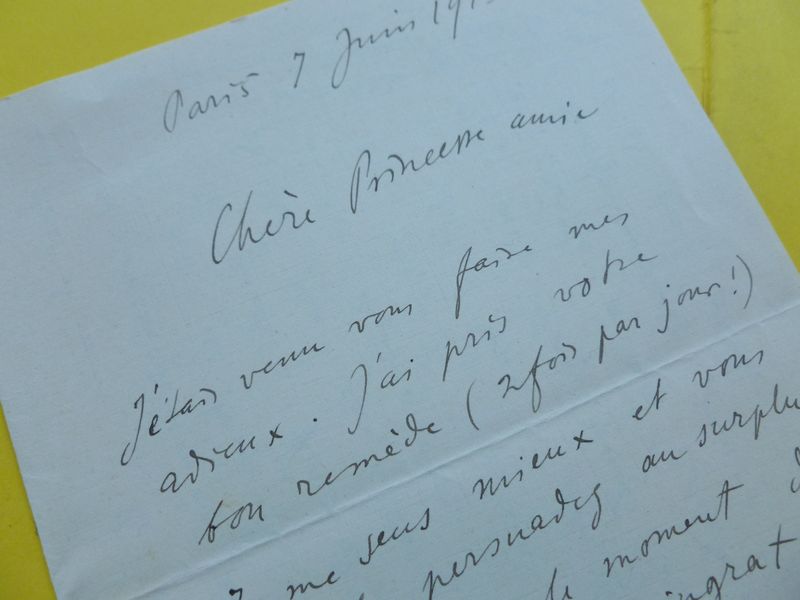 Paris 7 Juin 191
Chère Princesse amie
J'étais venu vous faire mes
adieux. J'ai pris votre
bon remède (2 fois par jour!)
me sens mieux et vous
persuadez au surplu
le moment d
ingrat